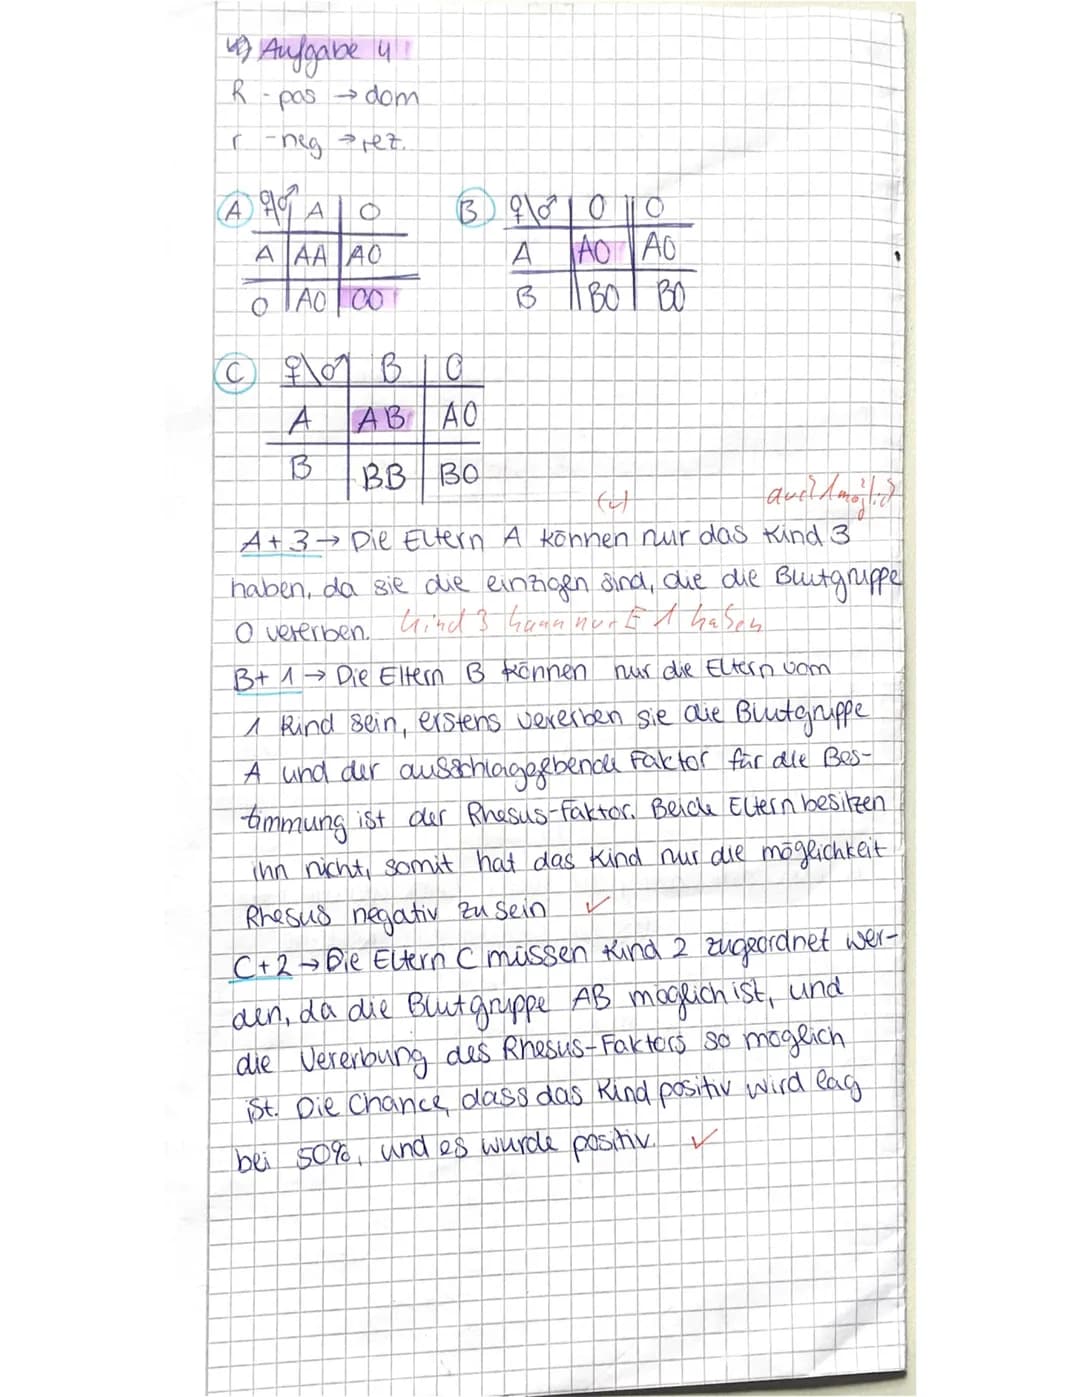 4) Aufgabe 4!
R - pos → dom
r - neg → rez.
A ♀\♂ A O
A AA AO
O AO OO
B ♀\♂ O O
A AO AO
B BO BO
C ♀\♂ B O
A AB AO
B BB BO
(✓) auch 1 möglich
A+3 → Die Eltern A können nur das Kind 3
haben, da sie die einzigen sind, die die Blutgruppe
O vererben. Kind 3 kann nur E 1 haben
B+1 → Die Eltern B können nur die Eltern vom
1 Kind sein, erstens vererben sie die Blutgruppe
A und der ausschlaggebende Faktor für die Bes-
timmung ist der Rhesus-Faktor. Beide Eltern besitzen
ihn nicht, somit hat das Kind nur die möglichkeit
Rhesus negativ zu sein ✓
C+2 → Die Eltern C müssen Kind 2 zugeordnet wer-
den, da die Blutgruppe AB möglich ist, und
die Vererbung des Rhesus-Faktors so möglich
ist. Die Chance, dass das Kind positiv wird lag
bei 50%, und es wurde positiv. ✓